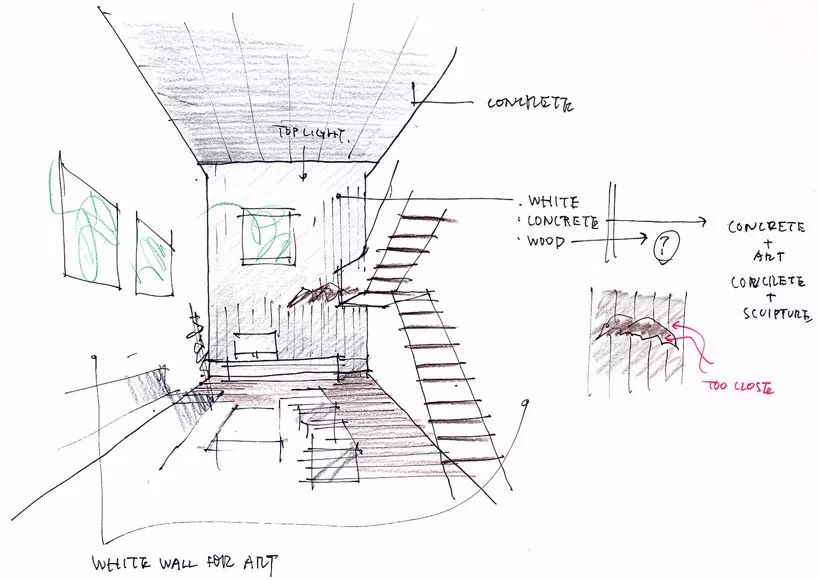 CONCRETE
TOP LIGHT.
· WHITE
· CONCRETE
· WOOD
?
CONCRETE
+
ART
CONCRETE
+
SCULPTURE
TOO CLOSE
WHITE WALL FOR ART